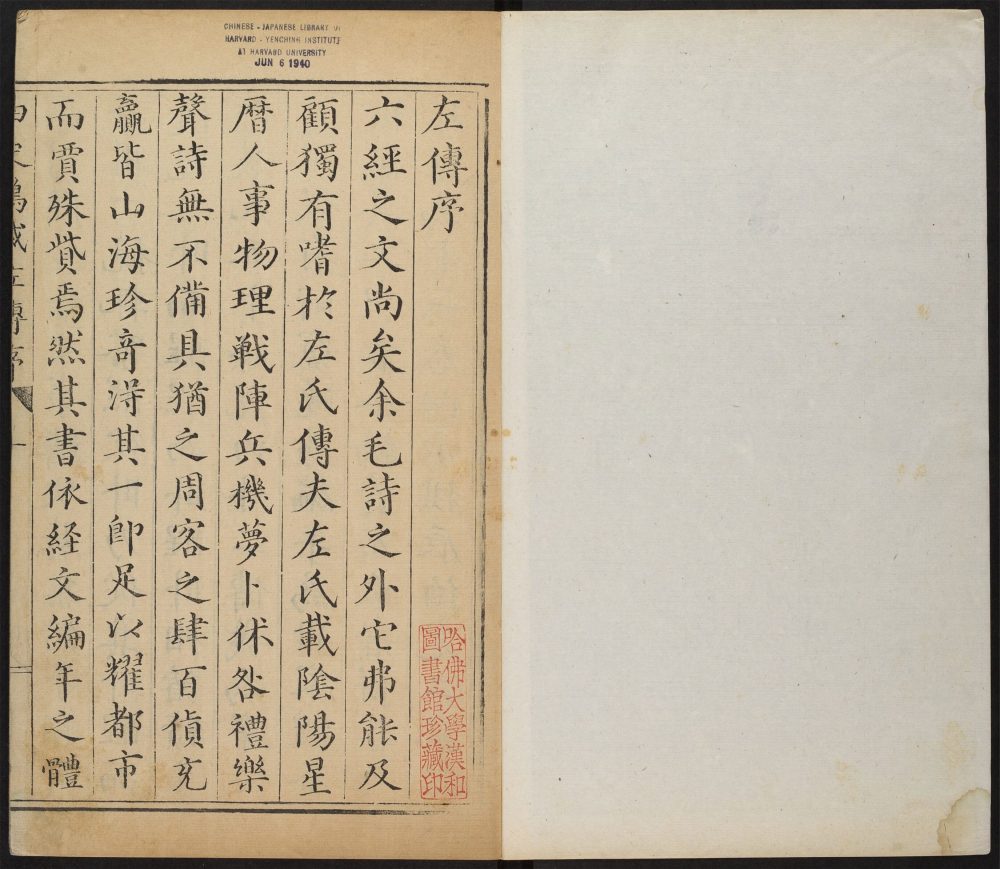 CHINESE - JAPANESE LIBRARY OF
HARVARD - YENCHING INSTITUTE
AT HARVARD UNIVERSITY
JUN 6 1940
左傳序
六經之文尚矣余毛詩之外它弗能及
顧獨有嗜於左氏傳夫左氏載陰陽星
曆人事物理戰陣兵機夢卜休咎禮樂
聲詩無不備具猶之周客之肆百偵充
贏皆山海珍竒淂其一即足以耀都市
而賈殊貲焉然其書依経文編年之體
左傳序
一
哈佛大學漢和
圖書館珍藏印